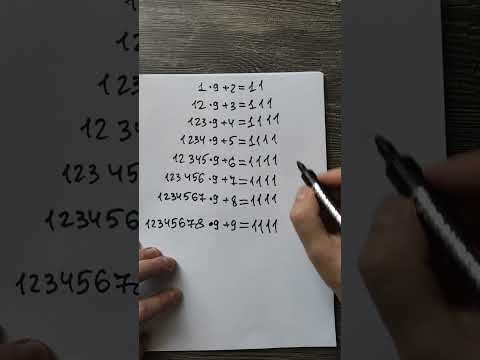 1·9+2=11
12·9+3=111
123·9+4=1111
1234·9+5=1111
12345·9+6=1111
123456·9+7=1111
1234567·9+8=1111
12345678·9+9=1111